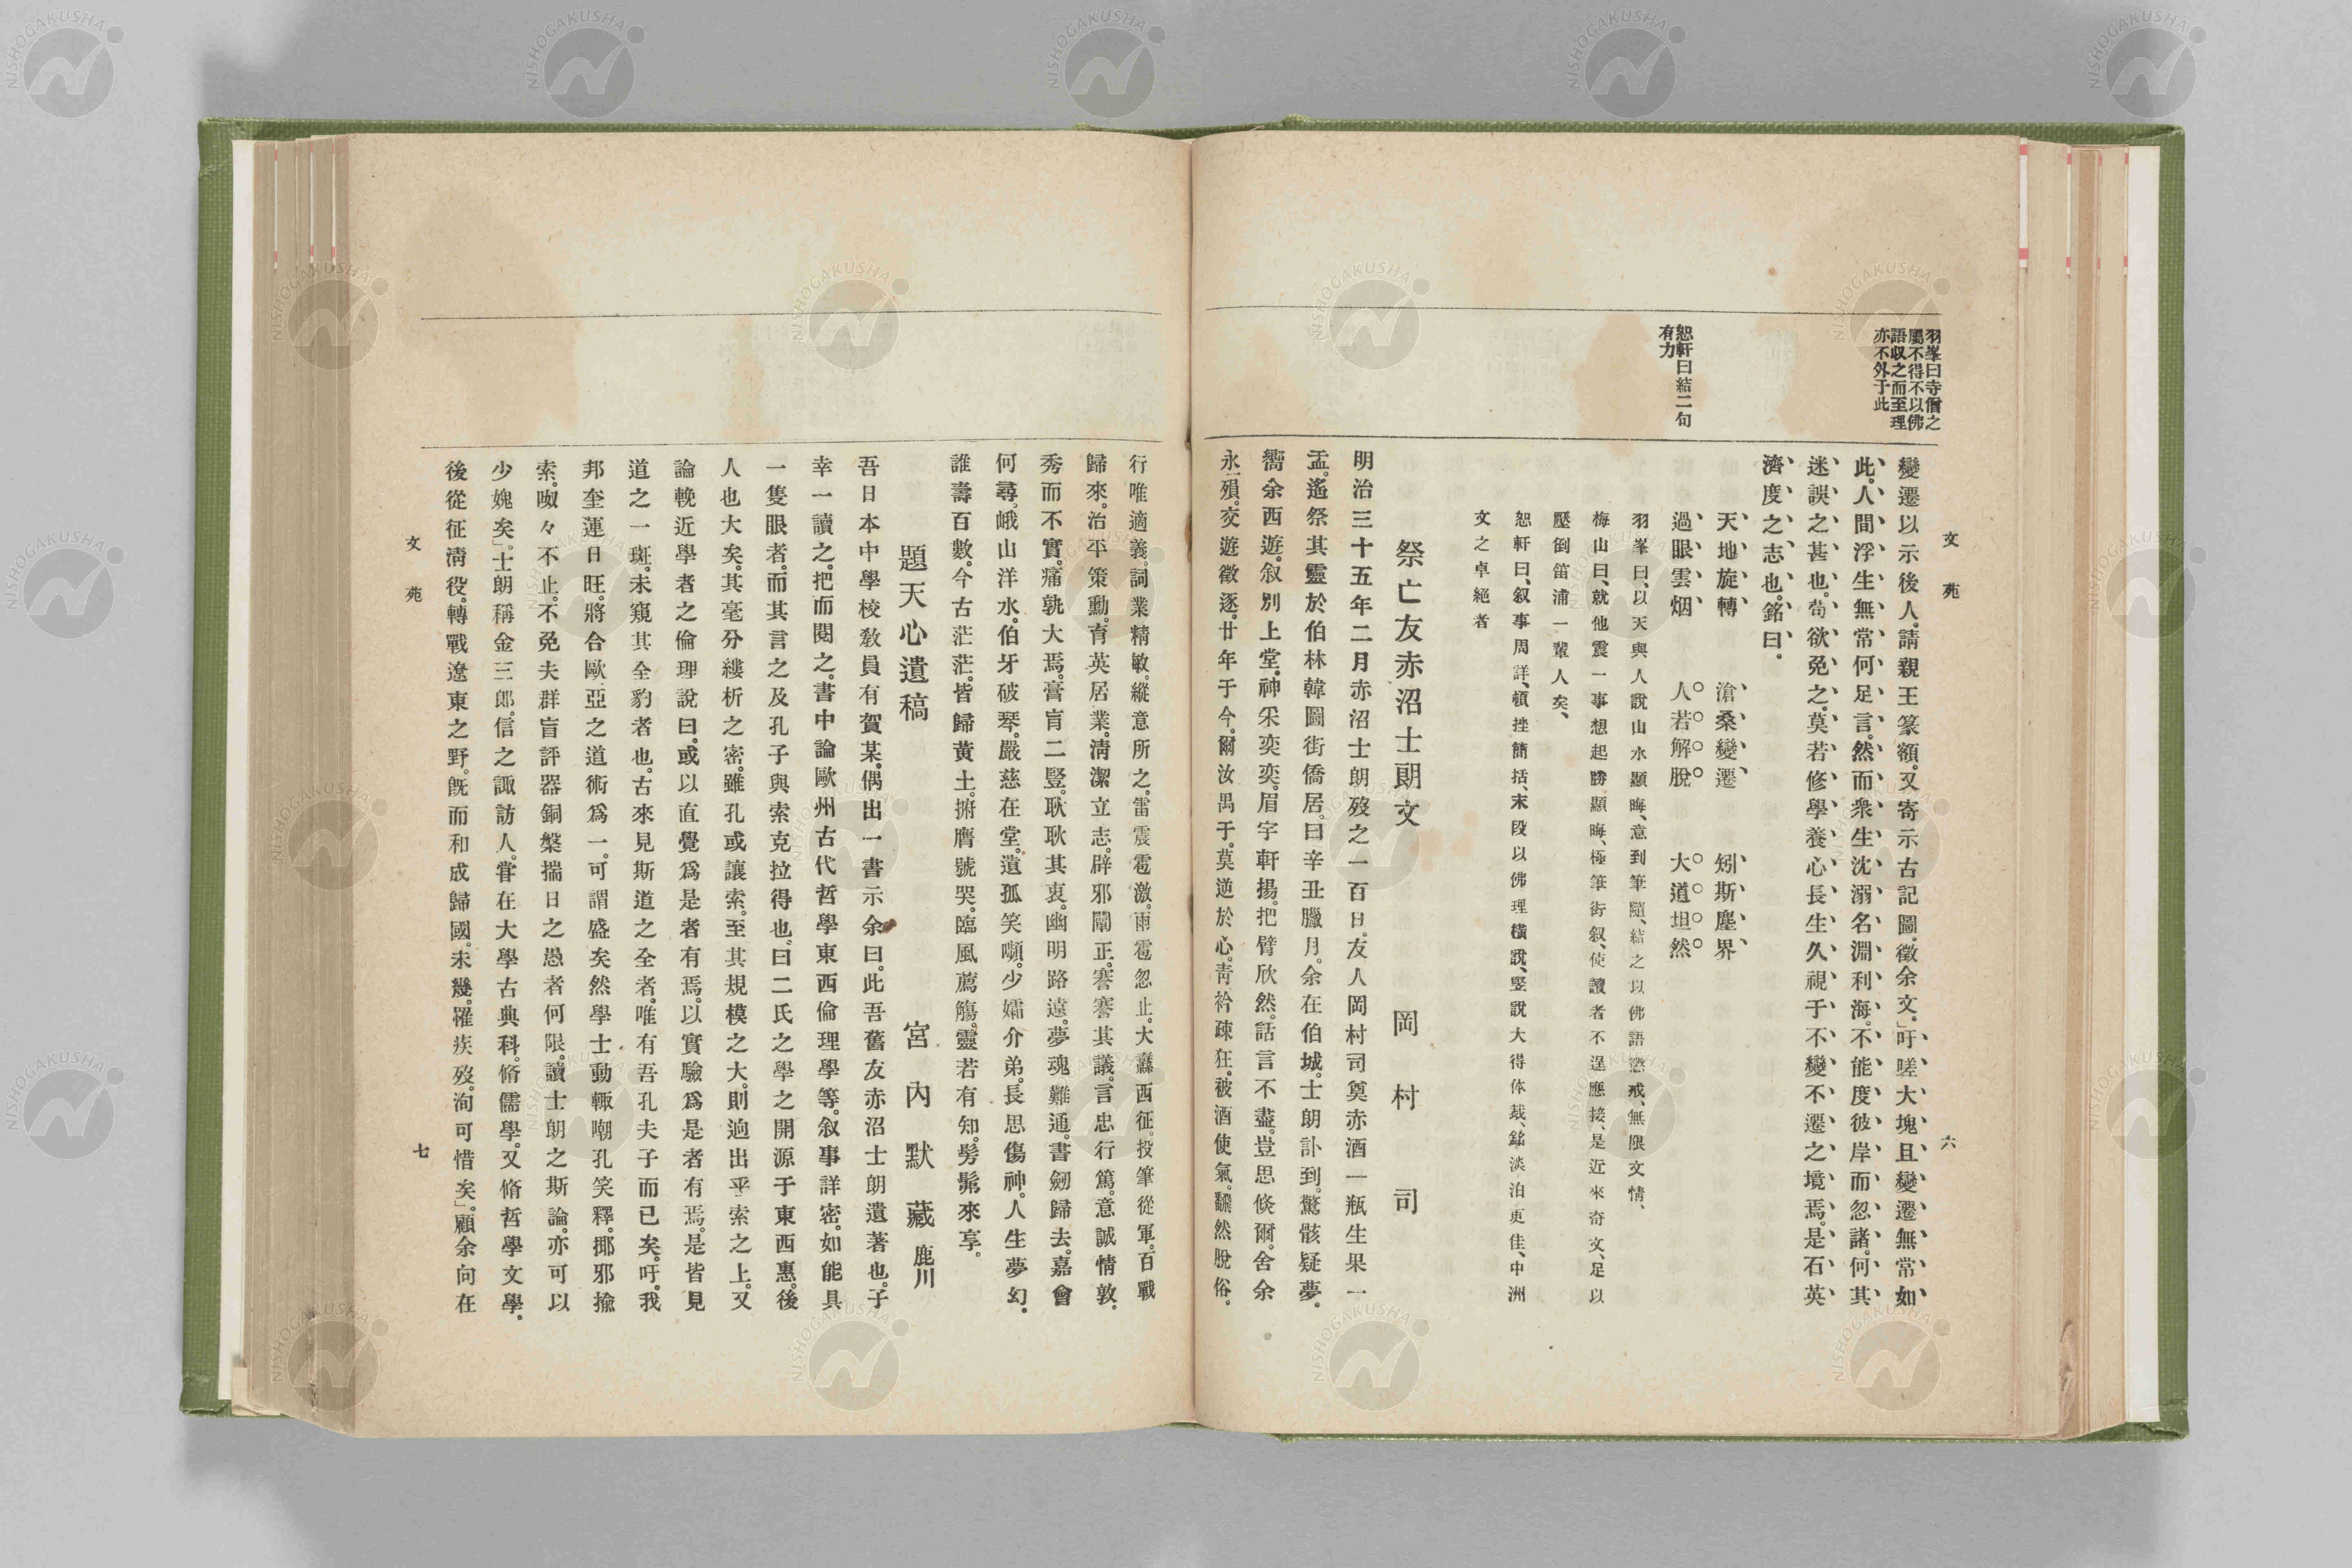 文苑
六
羽峯曰寺僧之
屬不得不以佛
語収之而至理
亦不外于此
恕軒曰結二句
有力
變遷以示後人。請親王篆額。又寄示古記圖。徵余文。」吁嗟大塊且變遷無常如
此。人間浮生無常何足言。然而衆生沈溺名淵利海。不能度彼岸而忽諸。何其
迷誤之甚也。苟欲免之。莫若修學養心長生久視于不變不遷之境焉。是石英
濟度之志也。銘曰。
天地旋轉 滄桑變遷 矧斯塵界
過眼雲烟 人若解脫 大道坦然
羽峯曰、以天與人說山水顯晦、意到筆隨、結之以佛語懲戒、無限文情、
梅山曰、就他震一事想起勝顯晦、極筆街叙、使讀者不遑應接、是近來奇文、足以
壓倒笛浦一輩人矣、
恕軒曰、叙事周詳、頓挫簡括、末段以佛理橫說、竪說大得体裁、銘淡泊更佳、中洲
文之卓絕者
祭亡友赤沼士朗文 岡村司
明治三十五年二月赤沼士朗歿之一百日。友人岡村司奠赤酒一瓶生果一
盂。遙祭其靈於伯林韓圖街僑居。曰辛丑臘月。余在伯城。士朗訃到。驚骸疑夢。
嚮余西遊。叙別上堂。神采奕奕。眉宇軒揚。把臂欣然。話言不盡。豈思倐爾。舍余
永殞。交遊徵逐。廿年于今。爾汝禺于。莫逆於心。靑衿疎狂。被酒使氣。飜然脫俗。
行唯適義。詞業精敏。縱意所之。雷震雹激。雨雹忽止。大纛西征。投筆從軍。百戰
歸來。治平策動。育英居業。淸潔立志。辟邪闡正。謇謇其議。言忠行篤。意誠情敦。
秀而不實。痛孰大焉。膏肓二豎。耿耿其衷。幽明路遠。夢魂難通。書劒歸去。嘉會
何尋。峨山洋水。伯牙破琴。嚴慈在堂。遺孤笑嚬。少孀介弟。長思傷神。人生夢幻。
誰壽百數。今古茫茫。皆歸黃土。拊膺號哭。臨風薦觴。靈若有知。髣髴來享。
題天心遺稿 宮內默藏 鹿川
吾日本中學校敎員有賀某。偶出一書示余曰。此吾舊友赤沼士朗遺著也。子
幸一讀之。把而閱之。書中論歐州古代哲學東西倫理學等。叙事詳密。如能具
一隻眼者。而其言之及孔子與索克拉得也。曰二氏之學之開源于東西惠。後
人也大矣。其毫分縷析之密。雖孔或讓索。至其規模之大。則逈出乎索之上。又
論輓近學者之倫理說曰。或以直覺爲是者有焉。以實驗爲是者有焉。是皆見
道之一斑。未窺其全豹者也。古來見斯道之全者。唯有吾孔夫子而已矣。吁。我
邦奎運日旺。將合歐亞之道術爲一。可謂盛矣然學士動輙嘲孔笑釋。揶邪揄
索。呶々不止。不免夫群盲評器銅槃揣日之愚者何限。讀士朗之斯論。亦可以
少媿矣。」士朗稱金三郎。信之諏訪人。甞在大學古典科。脩儒學。又脩哲學文學。
後從征淸役。轉戰遼東之野。旣而和成歸國。未幾。罹疾歿。洵可惜矣。」顧余向在
文苑
七